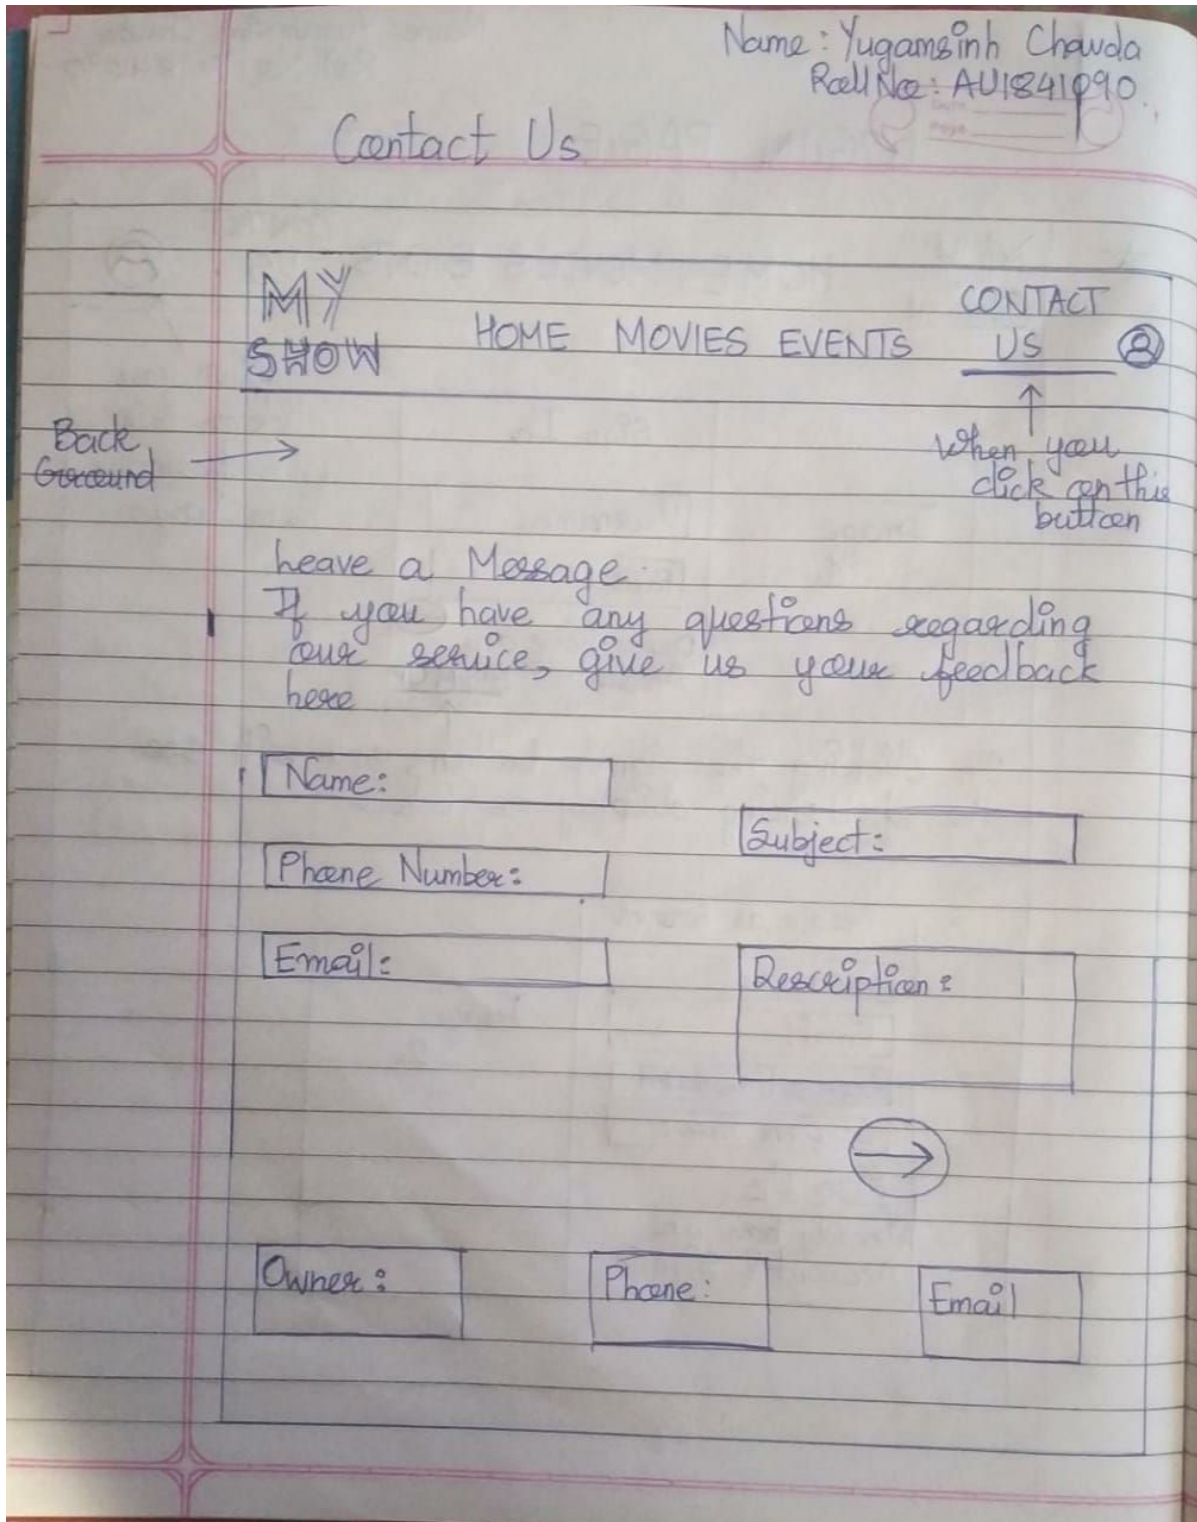 Name: Yugamsinh Chavda
Roll No: AU1841090
Contact Us
MY
SHOW
HOME MOVIES EVENTS CONTACT US
Back
Ground
When you
click on this
button
Leave a Message.
If you have any questions regarding
our service, give us your feedback
here
Name:
Subject:
Phone Number:
Email:
Description:
Owner:
Phone:
Email